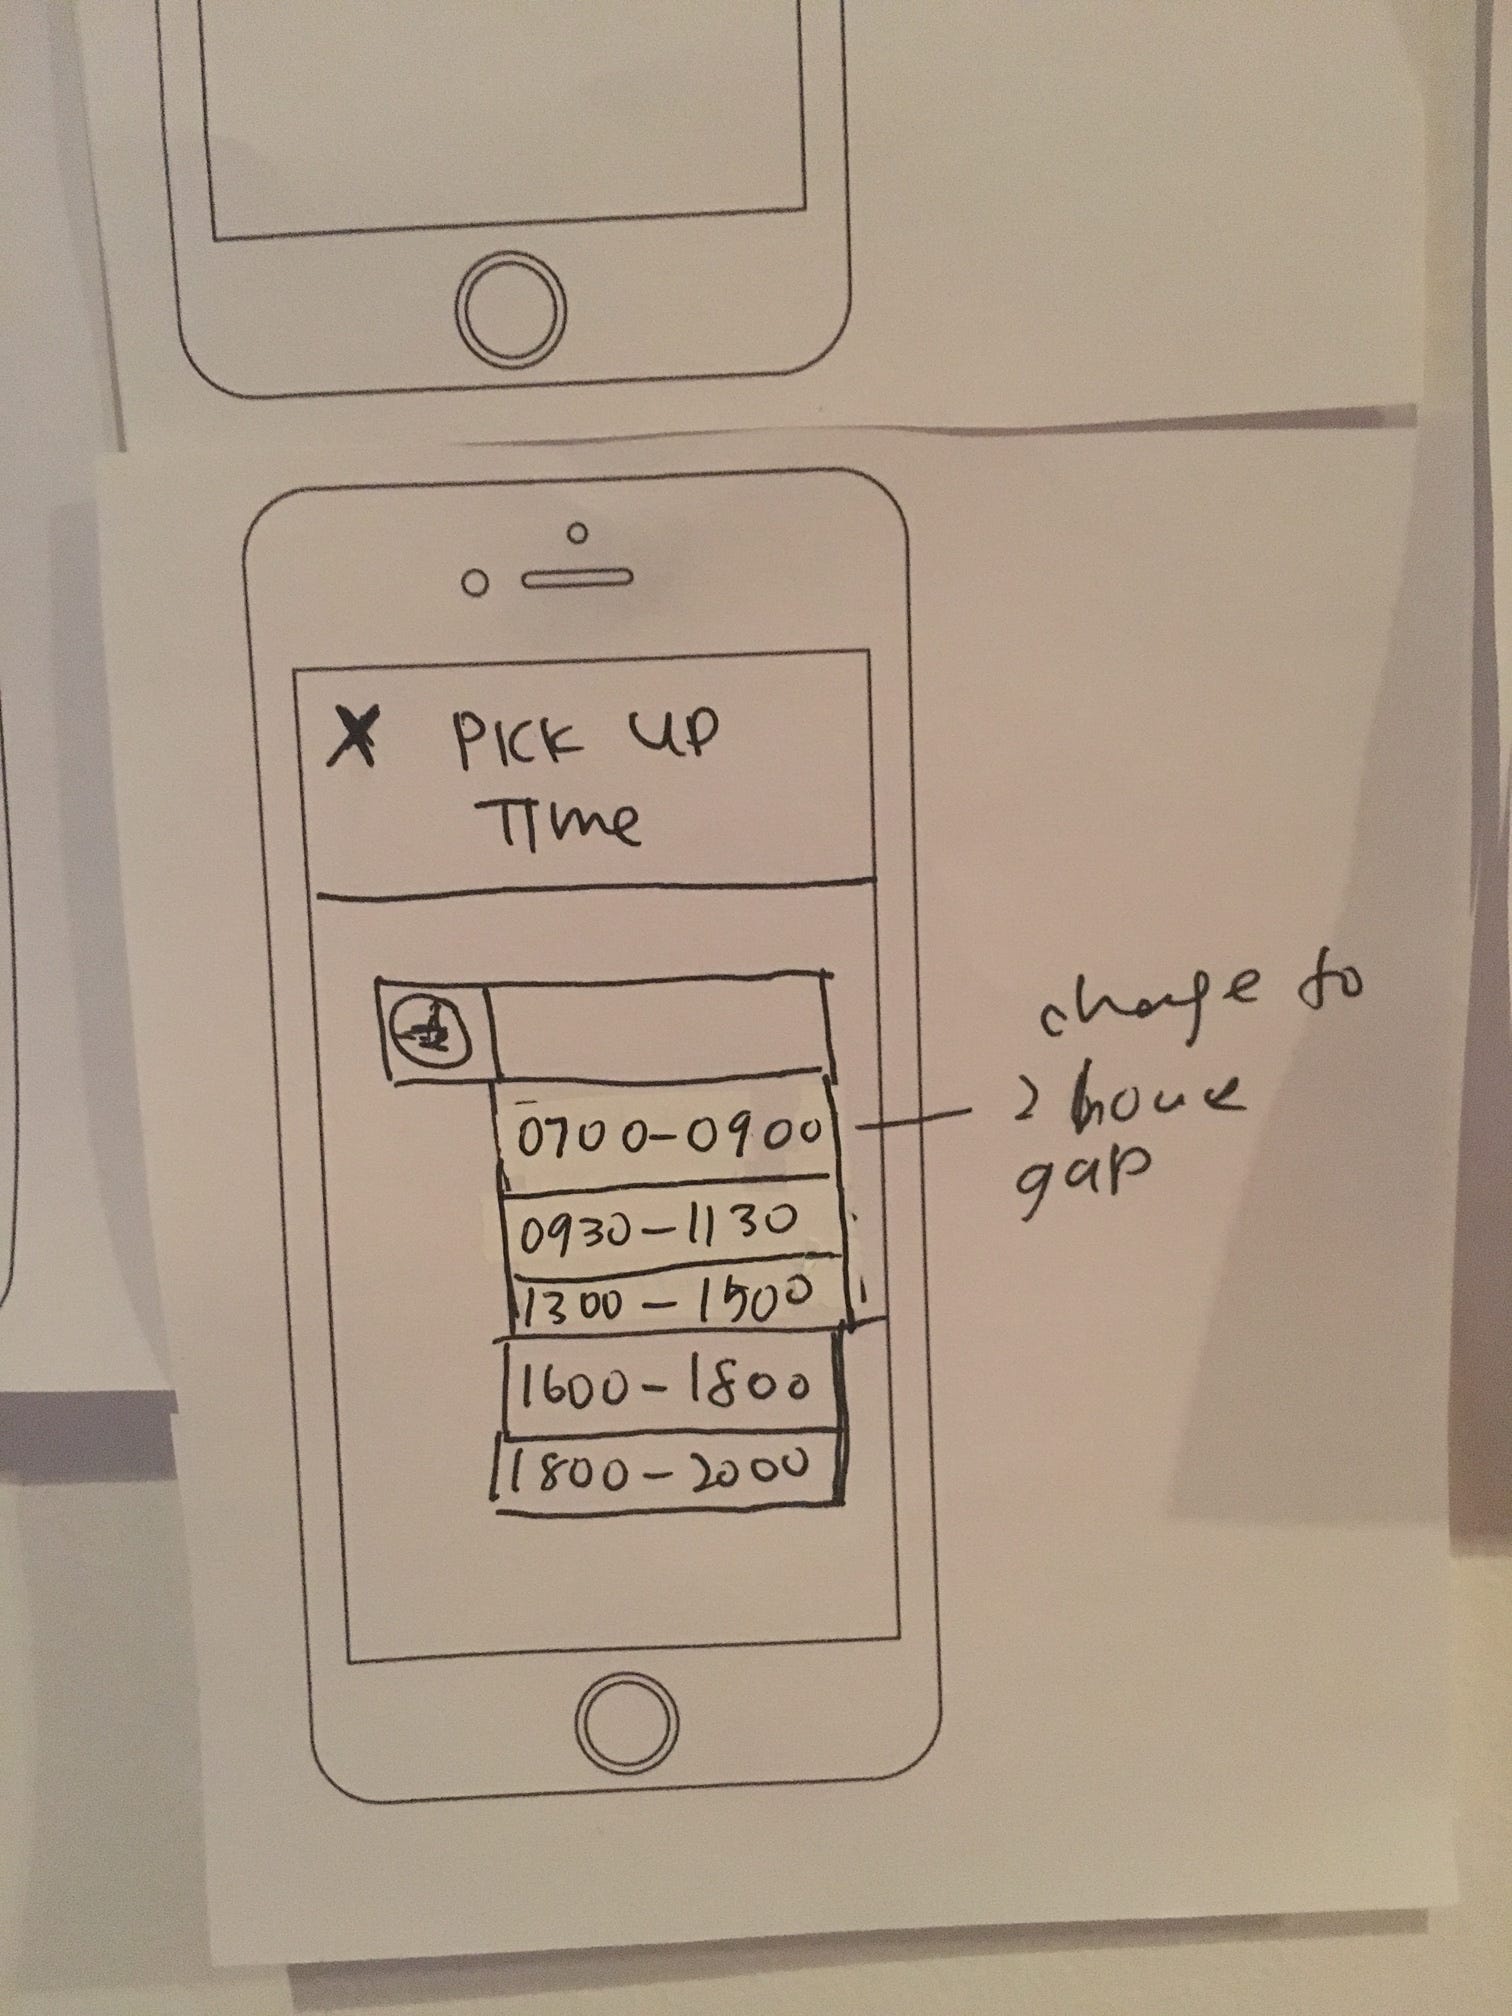 X PICK UP
TIme
0700-0900
0930-1130
1300-1500
1600-1800
1800-2000
change to
2 hour
gap